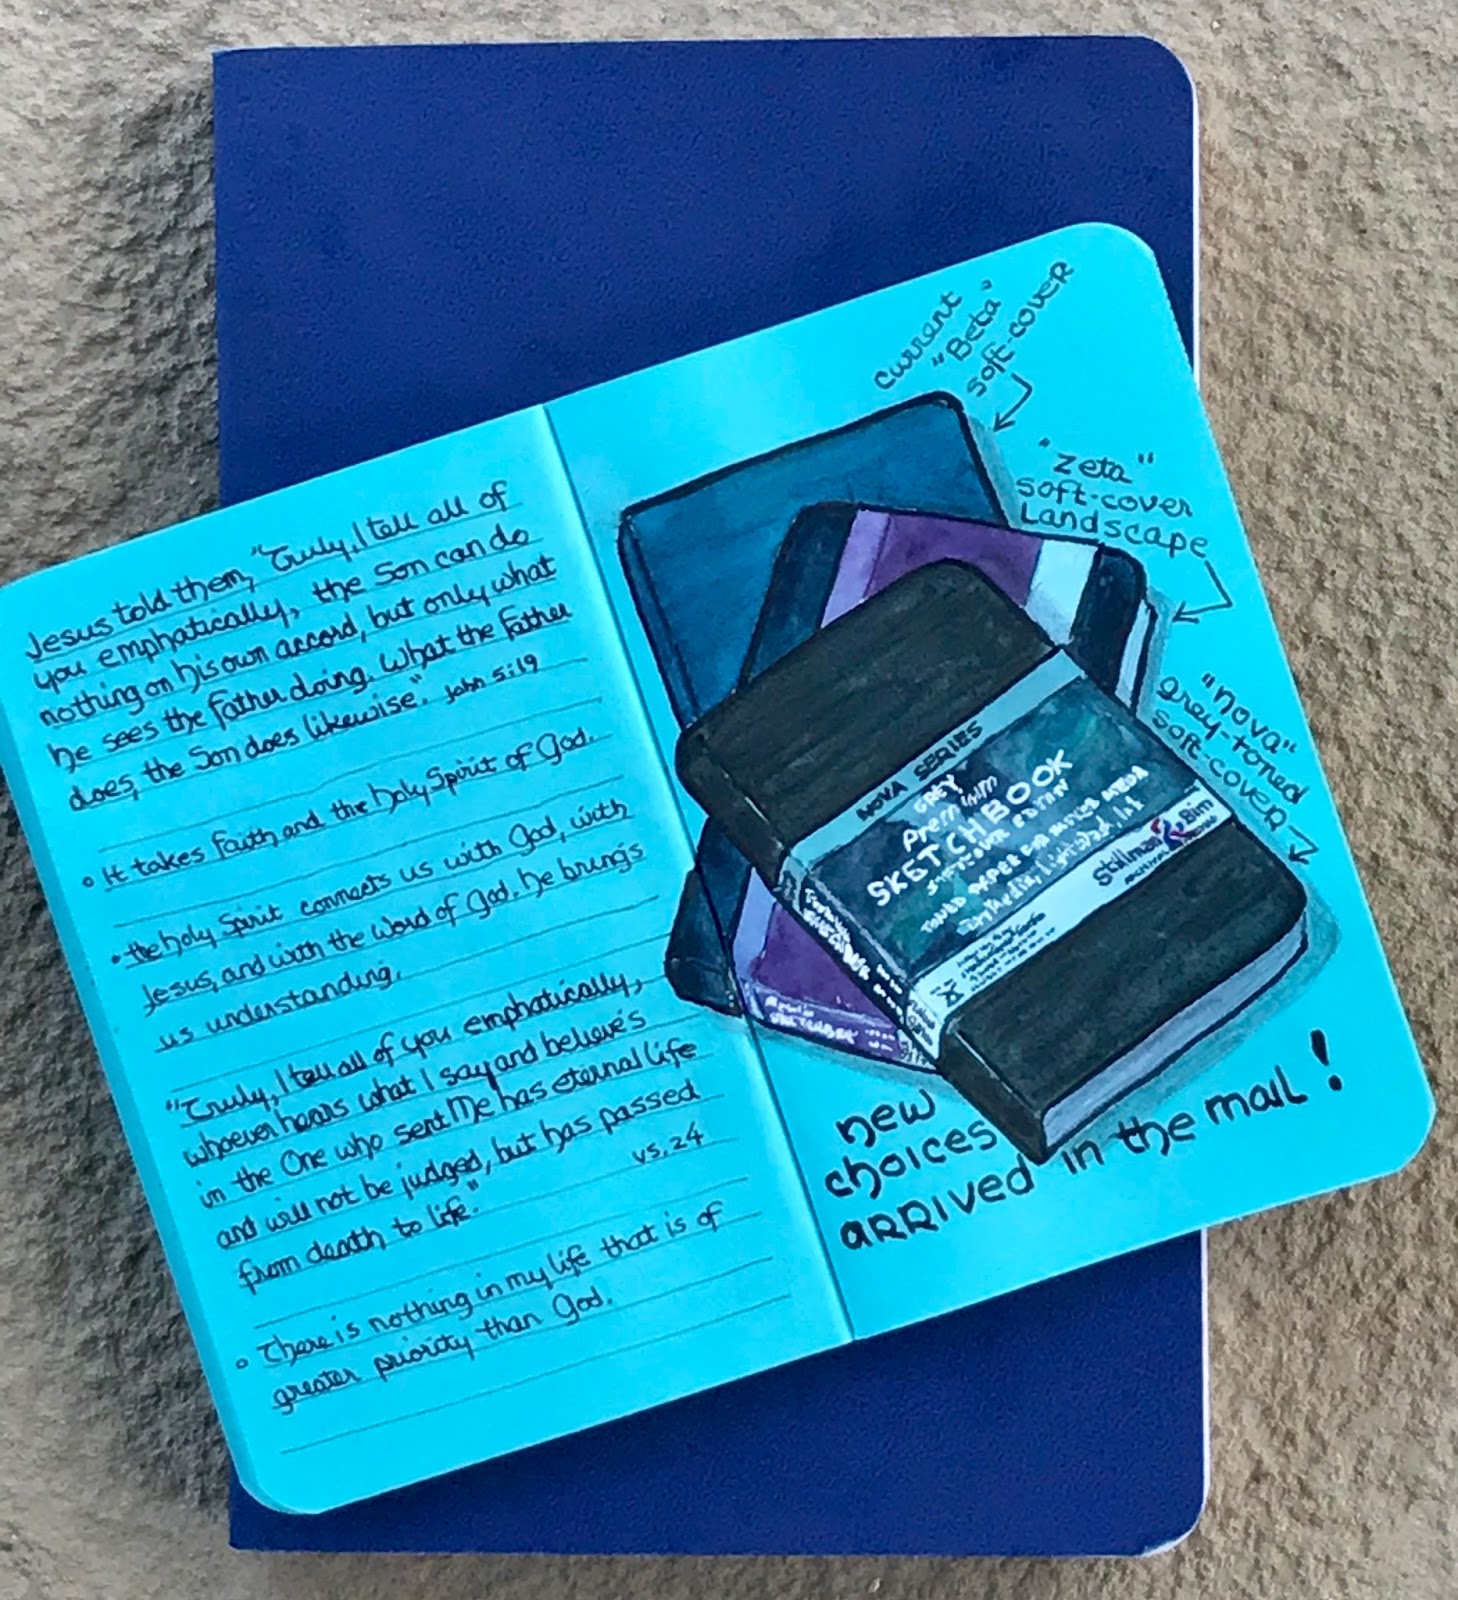 Jesus told them, "Truly, I tell all of
you emphatically, the Son can do
nothing on his own accord, but only what
he sees the Father doing. What the Father
does, the Son does likewise." John 5:19
• It takes faith and the Holy Spirit of God.
• the Holy Spirit connects us with God, with
Jesus, and with the Word of God. He brings
us understanding.
"Truly, I tell all of you emphatically,
whoever hears what I say and believes
in the One who sent Me has eternal life
and will not be judged, but has passed
from death to life." vs. 24
• There is nothing in my life that is of
greater priority than God.
current
"Beta"
soft-cover
"Zeta"
soft-cover
Landscape
"nova"
grey-toned
soft-cover
NOVA SERIES
GREY
Premium
SKETCHBOOK
SOFTCOVER EDITION
TONED PAPER FOR MIXED MEDIA
Stillman & Birn
SKETCHBOOK
new
choices
arrived in the mail!